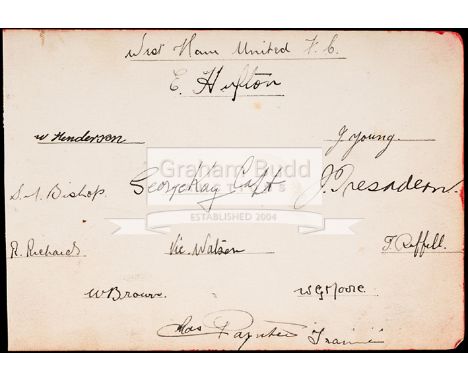 West Ham United F.C.
E. Hufton
W Henderson
J Young
Graham Budd
S.M. Bishop
George Kay Capt
J. Tresadern
ESTABLISHED 2004
R. Richards
Vic. Watson
J. Ruffell
W Brown
W G Moore
Chas Paynter Trainer